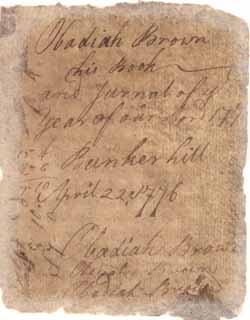 Obadiah Brown
his Book
and Jurnal of ye
Year of our Lord 177
Bunker hill
April 22 1776
Obadiah Brown
Obadiah Brown
Obadiah Brown